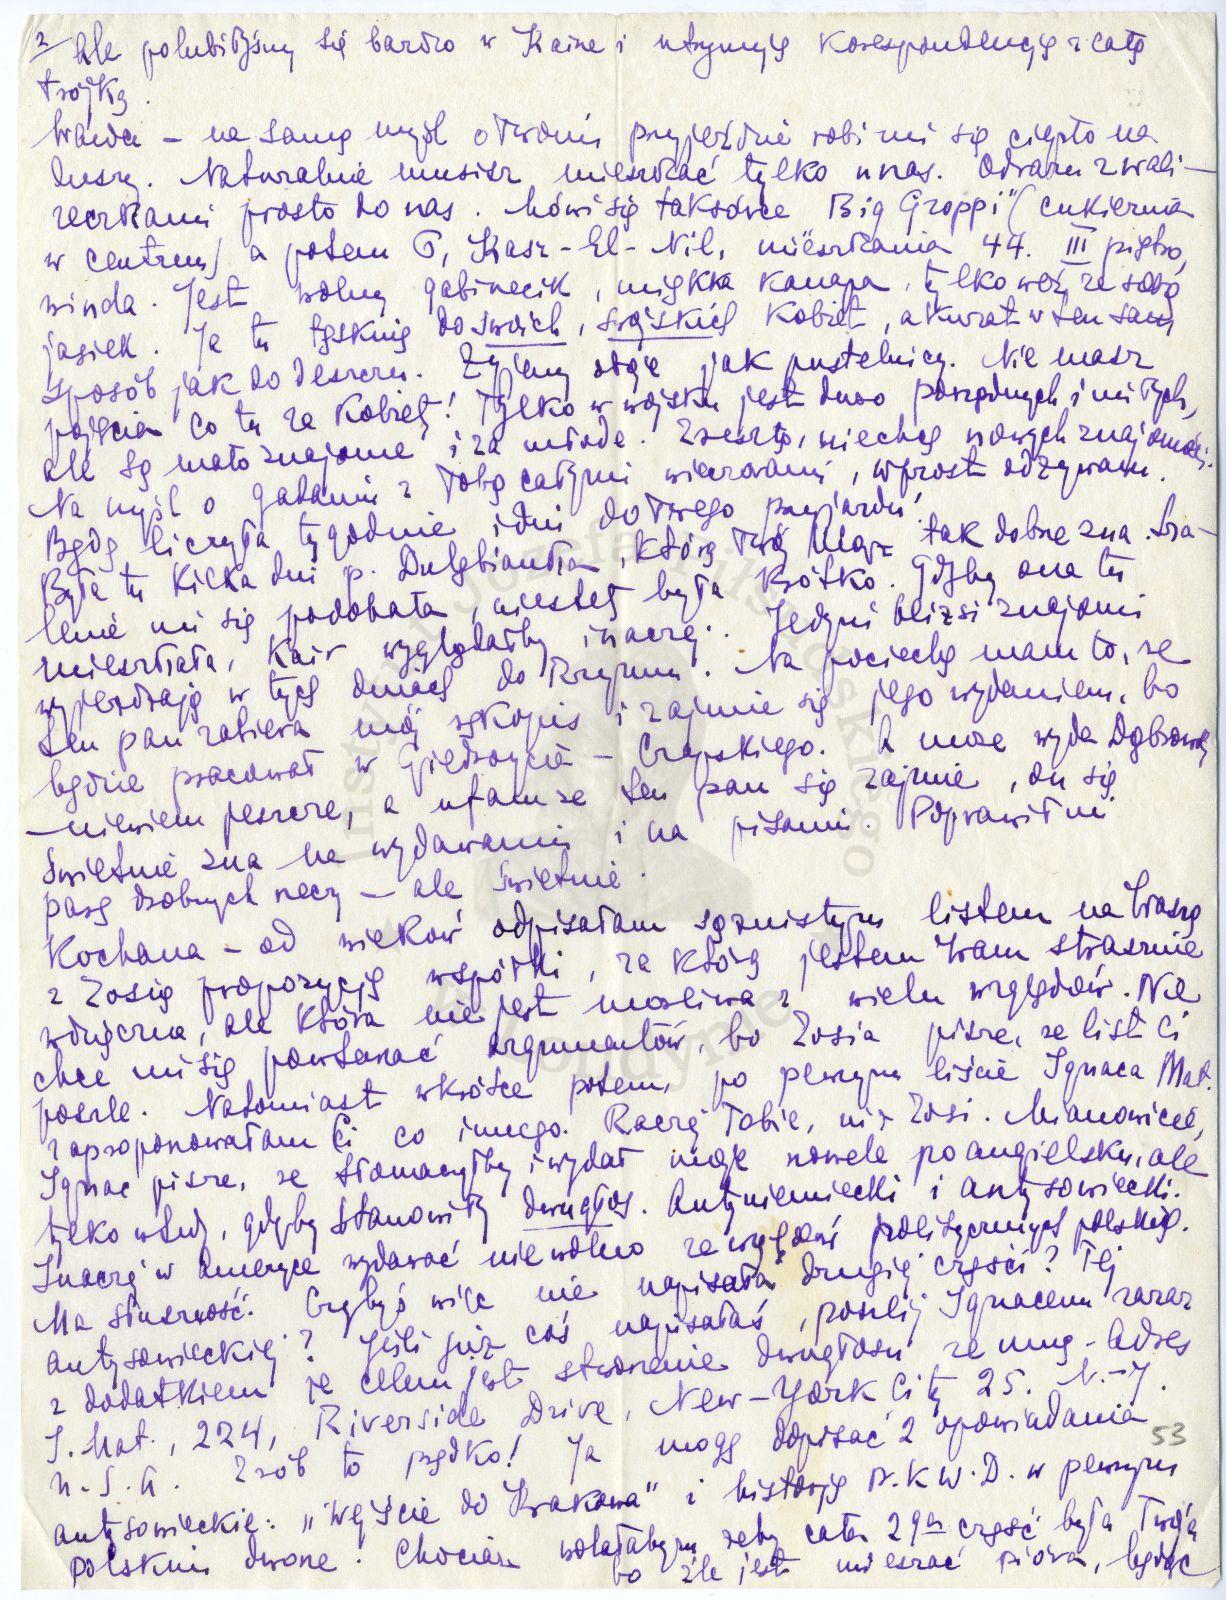 2
Ale polubiłyśmy się bardzo w Kairze i utrzymuję korespondencję z całą
trójką.
Wanda – na samą myśl o Twoim przyjeździe robi mi się ciepło na
duszy. Naturalnie musisz mieszkać tylko u nas. Odrazu z wali-
zeczkami prosto do nas. Mówi się taksówce "Big Groppi" (cukiernia
w centrum) a potem 6, Kasr-El-Nil, mieszkania 44. III piętro,
winda. Jest wolny gabinecik, miękka kanapa, tylko weź ze sobą
jasiek. Ja tu tęsknię do swoich, swojskich kobiet, akurat w ten sam
sposób jak do deszczu. Żyjemy oboje jak pustelnicy. Nie masz
pojęcia co tu za kobiety! Tylko w wojsku jest dużo porządnych i miłych,
ale są mało znajome i za młode. Zresztą, nie chcę nowych znajomości.
Na myśl o gadaniu z Tobą całymi wieczorami, wprost odżywam.
Będę liczyła tygodnie i dni do Twego przyjazdu!
Była tu kilka dni p. Dulębianka, którą Twój Mąż tak dobrze zna. Sza-
lenie mi się podobała, niestety była krótko. Gdyby ona tu
mieszkała, Kair wyglądałby inaczej. Jedyni bliżsi znajomi
wyjeżdżają w tych dniach do Rzymu. Na pociechę mam to, że
ten pan zabiera mój rękopis i zajmie się jego wydaniem, bo
będzie pracował w Giedroycia – Czapskiego. A może wyda Dąbrowski
– nie wiem jeszcze, a ufam że ten pan się zajmie, on się
świetnie zna na wydawaniu i na pisaniu. Poprawił mi
parę drobnych rzeczy – ale świetnie.
Kochana – od wieków odpisałam sążnistym listem na Waszą
z Zosią propozycję współki, za którą jestem Wam strasznie
wdzięczna, ale która nie jest możliwa z wielu względów. Nie
chce mi się powtarzać argumentów, bo Zosia pisze, że list Ci
posłe. Natomiast wkrótce potem, po pewnym liście Ignaca Mat.
zaproponowałam Ci co innego. Raczej Tobie, niż Zosi. Mianowicie,
Ignac pisze, że tłomaczyłby i wydał moje nowele po angielsku, ale
tylko wtedy, gdyby stanowiły dwugłos. Antyniemiecki i antysowiecki.
Inaczej w Ameryce wydawać nie wolno ze względów politycznych polskich.
Ma słuszność. Czybyś więc nie napisała drugiej części? Tej
antysowieckiej? Jeśli już coś napisałaś, poślij Ignacemu zaraz
z dodatkiem że celem jest stworzenie dwugłosu ze mną – Adres
I. Mat., 224, Riverside Drive, New-York City 25. N.-Y.
U.S.A. Zrób to prędko! Ja mogę dopisać 2 opowiadania
53
antysowieckie: "Wejście do Krakowa" i historję N.K.W.D. w pewnym
polskim dworze. Chociaż wolałabym żeby cała 2ga część była Twoja
bo źle jest mieszać pióra, będąc